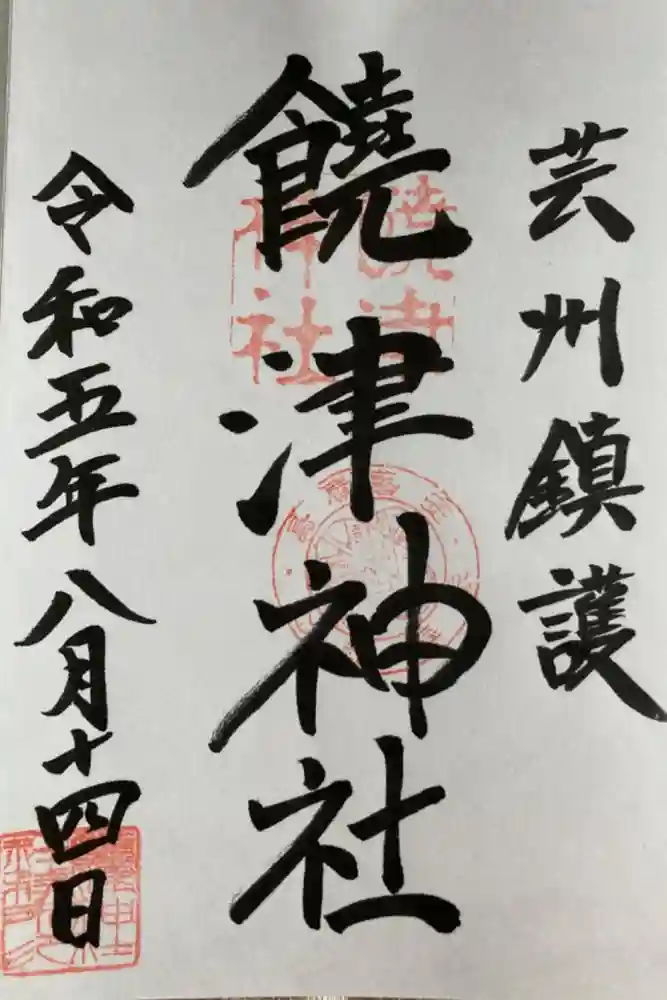 芸州鎮護
饒津神社
令和五年八月十四日
饒津
神社